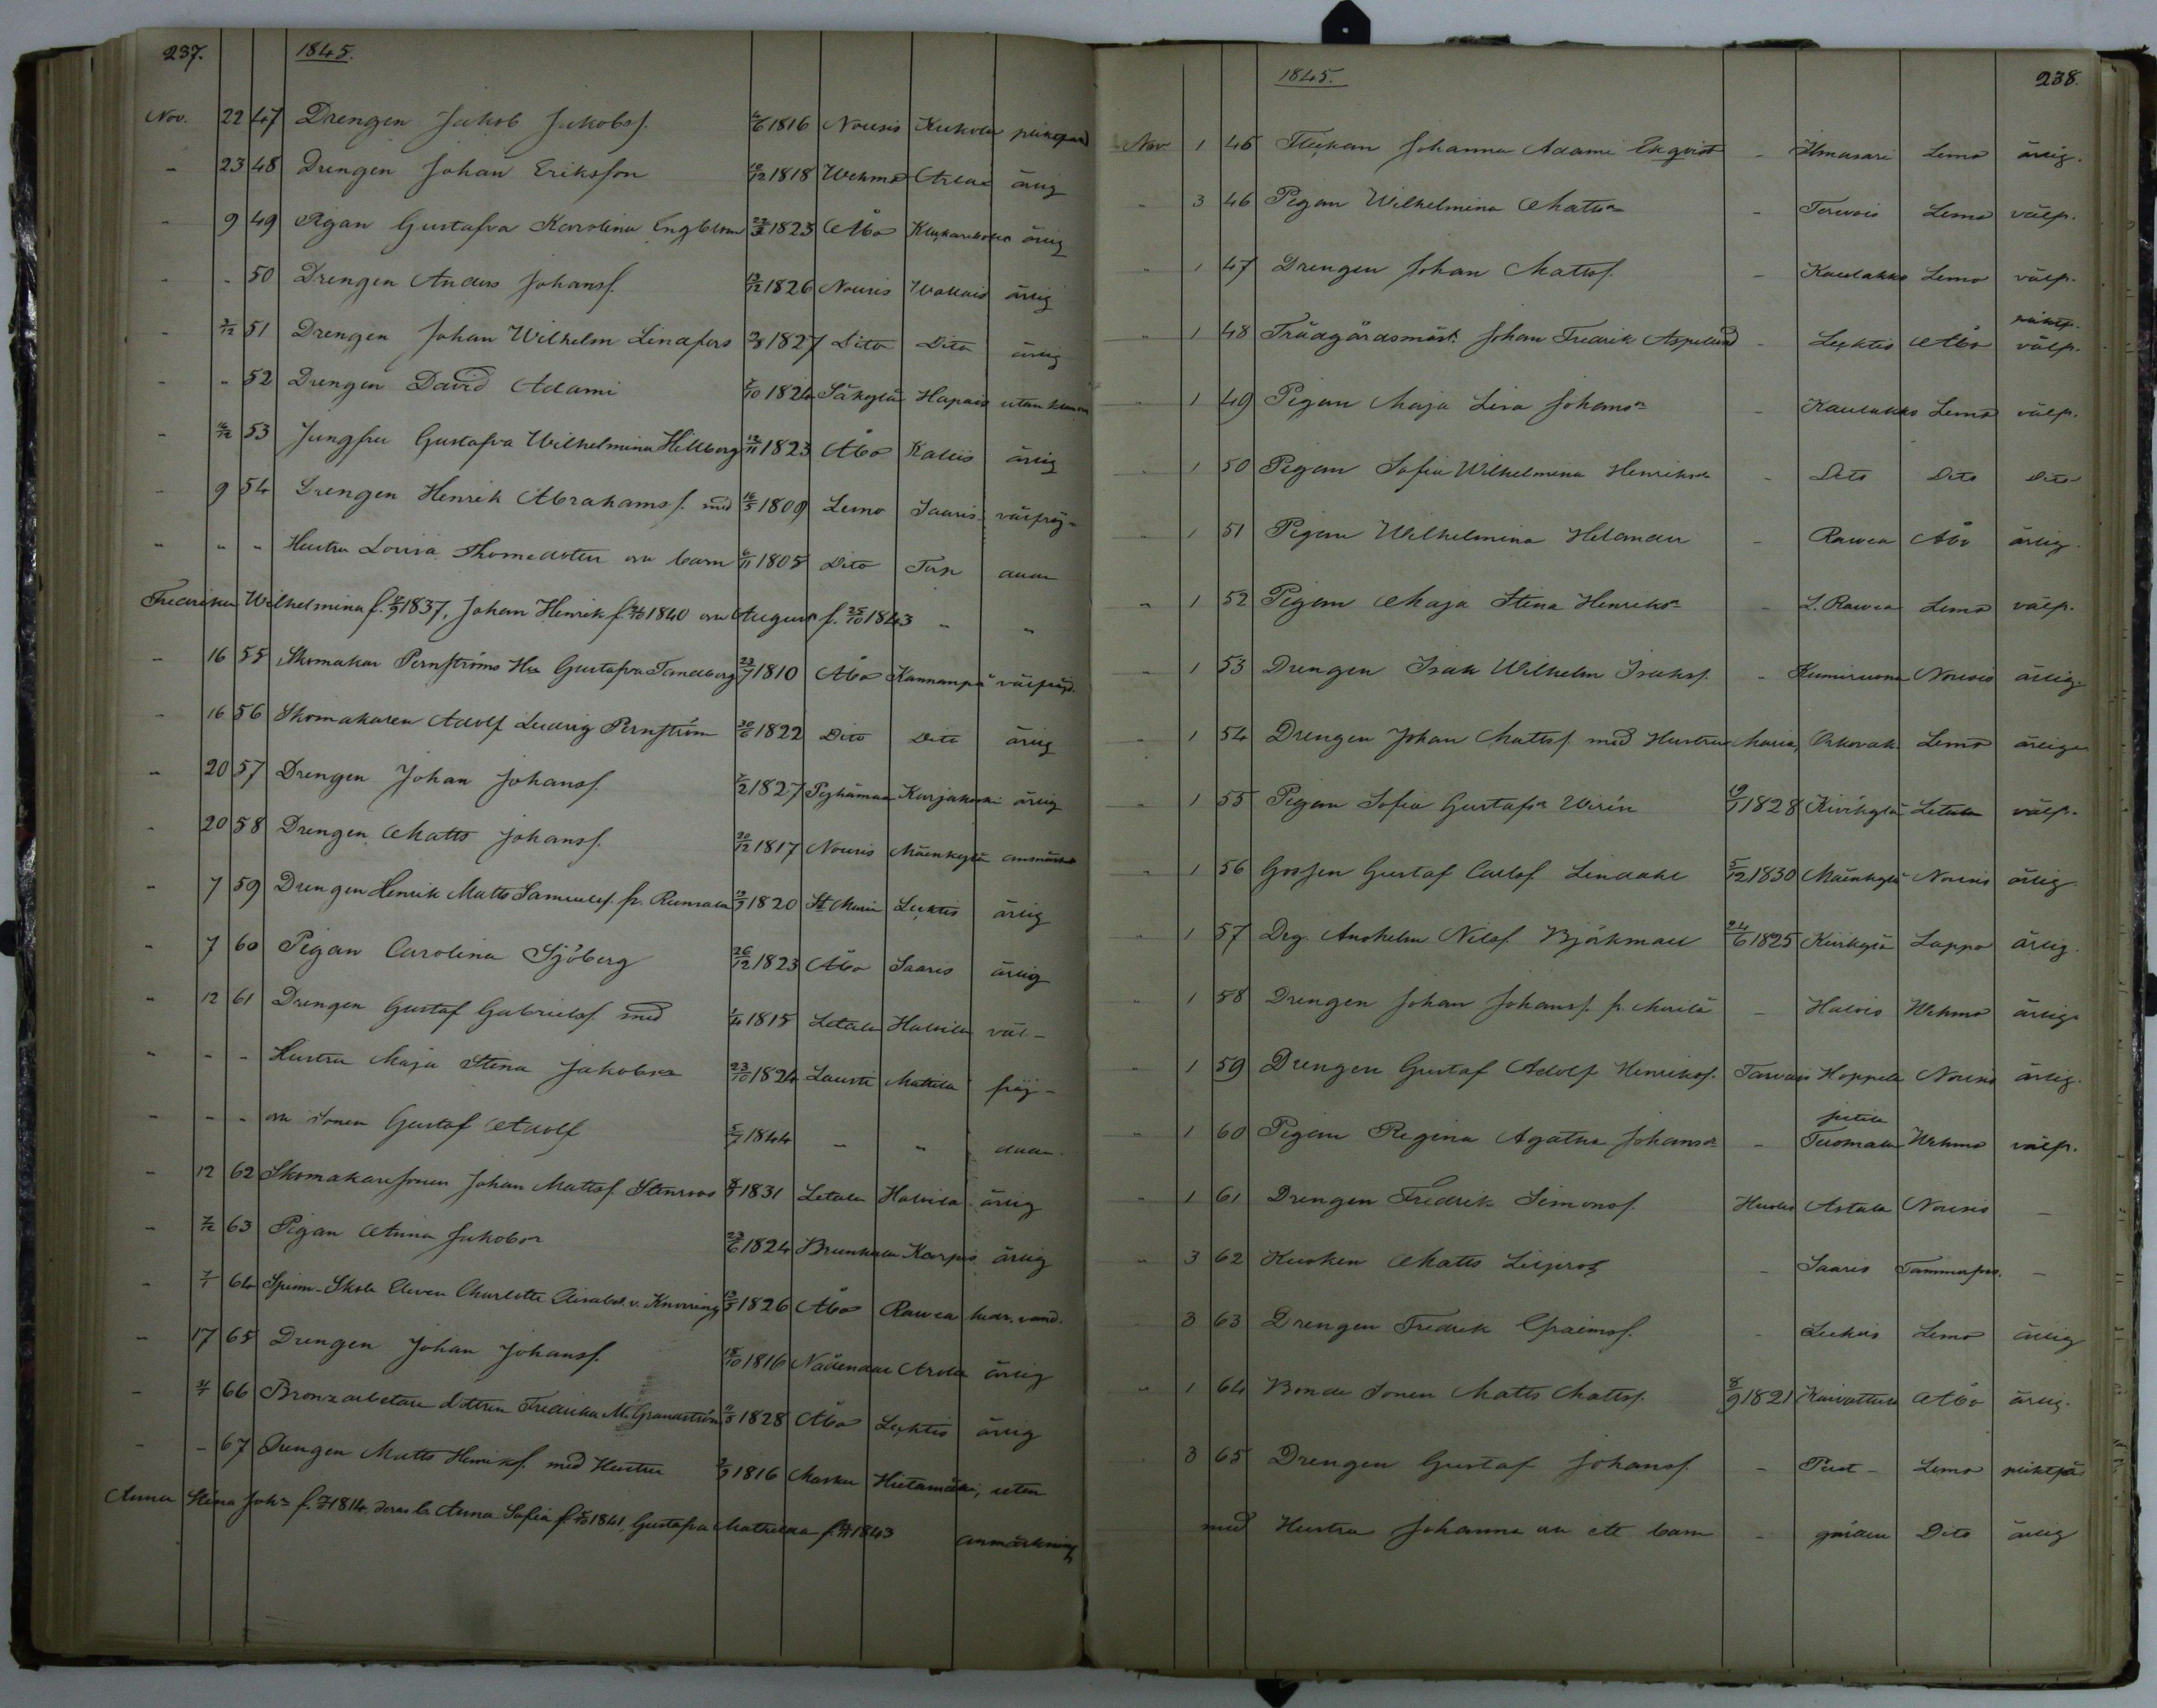 237. 1845.
Nov. 22 47 Drengen Jakob Jakobsf. 1816 Nousis Kukola
- 23 48 Drengen Johan Eriksson 10/12 1818 Wehmo ärlig
- 9 49 Pigan Gustafva Karolina Engblom 1823 Åbo ärlig
- - 50 Drengen Anders Johansf. 13/12 1826 Nousis Wallais ärlig
- 3/12 51 Drengen Johan Wilhelm Lindfors 1827 Dito Dito ärlig
- - 52 Drengen David Adami 1824 Säkylä Hapais utan
- 53 Jungfru Gustafva Wilhelmina Hellberg 12/11 1823 Åbo Kallis ärlig
- 9 54 Drengen Henrik Abrahamsf. med 16/5 1809 Lemo Saaris välfrej-
- - - Hustru Lovisa Thomedotter o barn 6/11 1805 Dito Torp dade
Fredrika Wilhelmina f. 1837, Johan Henrik f. 1840 o August f. 25/10 1843 - -
- 16 55 Skomakar Pernströms Hu Gustafva Tandberg 23/7 1810 Åbo Kannanpä välfräjd.
- 16 56 Skomakaren Adolf Ludvig Pernström 30/6 1822 Dito Dito ärlig
- 20 57 Drengen Johan Johansf. 1827 Pyhämaa Kurjakoski ärlig
- 20 58 Drengen Matts Johansf. 20/12 1817 Nousis Mäenkylä
- 7 59 Drengen Henrik Matts Samuelsf. fr. Runsala 1820 St Marie Luktis ärlig
- 7 60 Pigan Carolina Sjöberg 26/12 1823 Åbo Saaris ärlig
- 12 61 Drengen Gustaf Gabrielsf. med 1815 Letala Halvila väl-
- - - Hustru Maja Stina Jakobsr 23/10 1824 Lausti Mattila fräj-
- - - o sonen Gustaf Adolf 5/7 1844 - - dade
- 12 62 Skomakaresonen Johan Mattsf. Stenroos 1831 Letala Halvila ärlig
- 7/12 63 Pigan Anna Jakobsr 23/6 1824 Brunkala Karpis ärlig
- 7/1 64 Spinn-Skole Eleven Charlotte v. Knorring 1826 Åbo Rawea
- 17 65 Drengen Johan Johansf. 18/10 1816 Nådendal Arola ärlig
- 66 Bronzarbetare dottren Fredrika M. Granström 1828 Åbo Luktis ärlig
- - 67 Drengen Matts Henriksf. med Hustru 1816 Masku Hietamäki, utan
Anna Stina Johr f. 1814, deras b. Anna Sofia f. 1841, Gustafva Mathilda f. 1843 anmärkning
1845. 238.
Nov. 1 45 Flickan Johanna Adami Ekqvist - Ilmasari Lemo ärlig.
- 3 46 Pigan Wilhelmina Mattsr - Tervois Lemo välf.
- 1 47 Drengen Johan Mattsf. - Kaulakko Lemo välf.
- 1 48 Trädgårdsmäst. Johan Fredrik Aspelund - Luktis Åbo välf.
- 1 49 Pigan Maja Lisa Johansr - Kaulakko Lemo välf.
- 1 50 Pigan Sofia Wilhelmina Henriksr - Dito Dito Dito
- 1 51 Pigan Wilhelmina Helander - Rawea Åbo ärlig.
- 1 52 Pigan Maja Stina Henriksr - L. Rawea Lemo välf.
- 1 53 Drengen Isak Wilhelm Isaksf. - Nousis ärlig.
- 1 54 Drengen Johan Mattsf. med Hustru Maria, Lemo ärliga
- 1 55 Pigan Sofia Gustafsr Wirén 19/1 1828 Kivikylä Letala välf.
- 1 56 Gossen Gustaf Carlsf. Lindahl 5/12 1830 Mäenkylä Nousis ärlig
- 1 57 Drg. Anshelm Nilsf. Björkman 24/6 1825 Kivikylä Lappo ärlig.
- 1 58 Drengen Johan Johansf. fr. - Halvis Wehmo ärlig.
- 1 59 Drengen Gustaf Adolf Henriksf. Tarvais Hoppela Nousis ärlig.
- 1 60 Pigan Regina Agatha Johansr - Tuomala Wehmo välf.
- 1 61 Drengen Fredrik Simonsf. Astala Nousis -
- 3 62 Kusken Matts Liljeros - Saaris Tammerfors. -
3 63 Drengen Fredrik Efraimsf. - Lemo ärlig
- 1 64 Bonde Sonen Matts Mattsf. 8/9 1821 Åbo ärlig.
3 65 Drengen Gustaf Johansf. - Lemo
med Hustru Johanna o ett barn - gården Dito ärlig